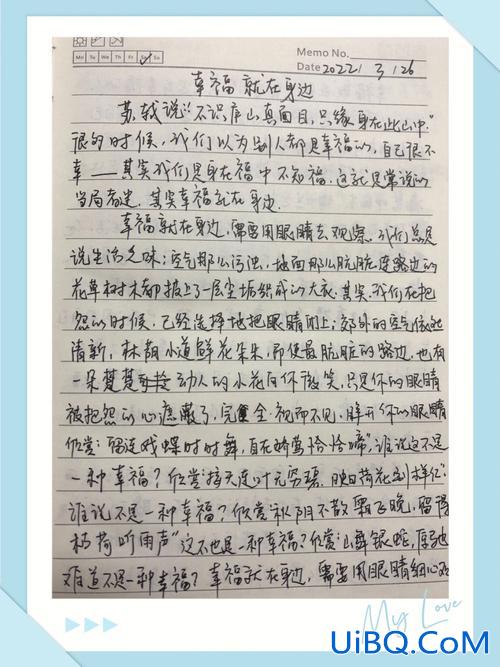 Mo Tu We Th Fr Sa Su
Memo No.
Date 2022 / 3 / 26
幸福就在身边
苏轼说“不识庐山真面目,只缘身在此山中.”
很的时候,我们以为别人都是幸福的,自己很不
幸——其实我们是身在福中不知福.这就是常说的
当局者迷.其实幸福就在身边.
幸福就在身边,需要用眼睛去观察.我们总是
说生活乏味:空气那么污浊,地面那么肮脏连路边的
花草树木都披上了一层尘垢织成的大衣.其实,我们在抱
怨的时候.已经选择地把眼睛闭上:郊外的空气依然
清新,林荫小道鲜花朵朵,即使最肮脏的路边,也有
一朵楚楚动人的小花向你微笑,只是你的眼睛
被抱怨的心虑蔽了,完全视而不见.睁开你的眼睛
欣赏:留连戏蝶时时舞,自在娇莺恰恰啼”,谁说这不是
一种幸福?欣赏接天莲叶无穷碧.映日荷花别样红”
谁说不是一种幸福?欣赏秋阴不散霜飞晚,留得
枯荷听雨声”这不也是一种幸福?欣赏山舞银蛇,原驰
难道不是一种幸福?幸福就在身边,需要用眼睛细心
My Love
UiBQ.CoM